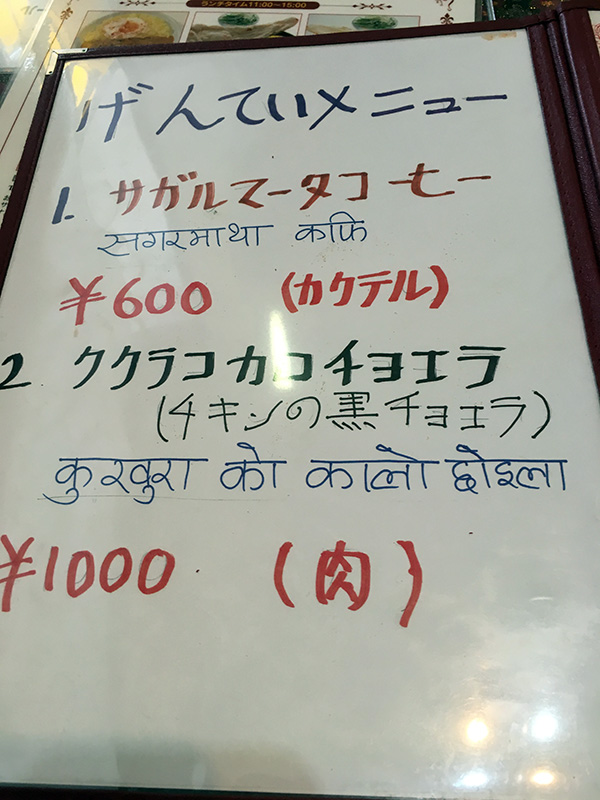 ランチタイム11:00~15:00
げんていメニュー
1. サガルマータコーヒー
सगरमाथा कफि
¥600 (カクテル)
2 ククラコカロチョエラ
(チキンの黒チョエラ)
कुखुरा को कालो छोइला
¥1000 (肉)